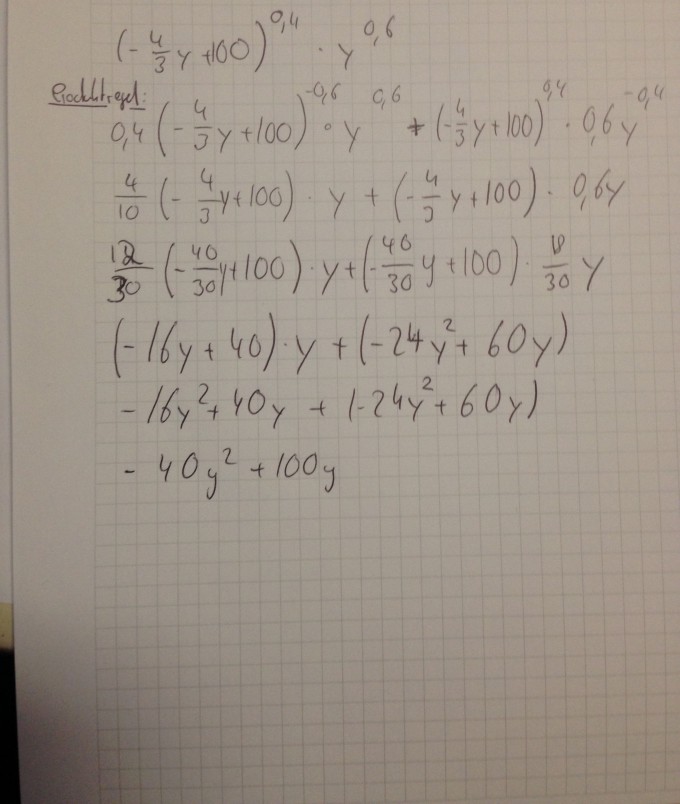 (-4/3 y +100)^0,4 · y^0,6
Produktregel:
0,4 (-4/3 y +100)^-0,6 · y^0,6 + (-4/3 y +100)^0,4 · 0,6y^-0,4
4/10 (-4/3 y +100) · y + (-4/3 y +100) · 0,6y
12/30 (-40/30 y +100) · y + (-40/30 y +100) · 18/30 y
(-16y + 40) · y + (-24y² + 60y)
-16y² + 40y + (-24y² + 60y)
- 40y² + 100y